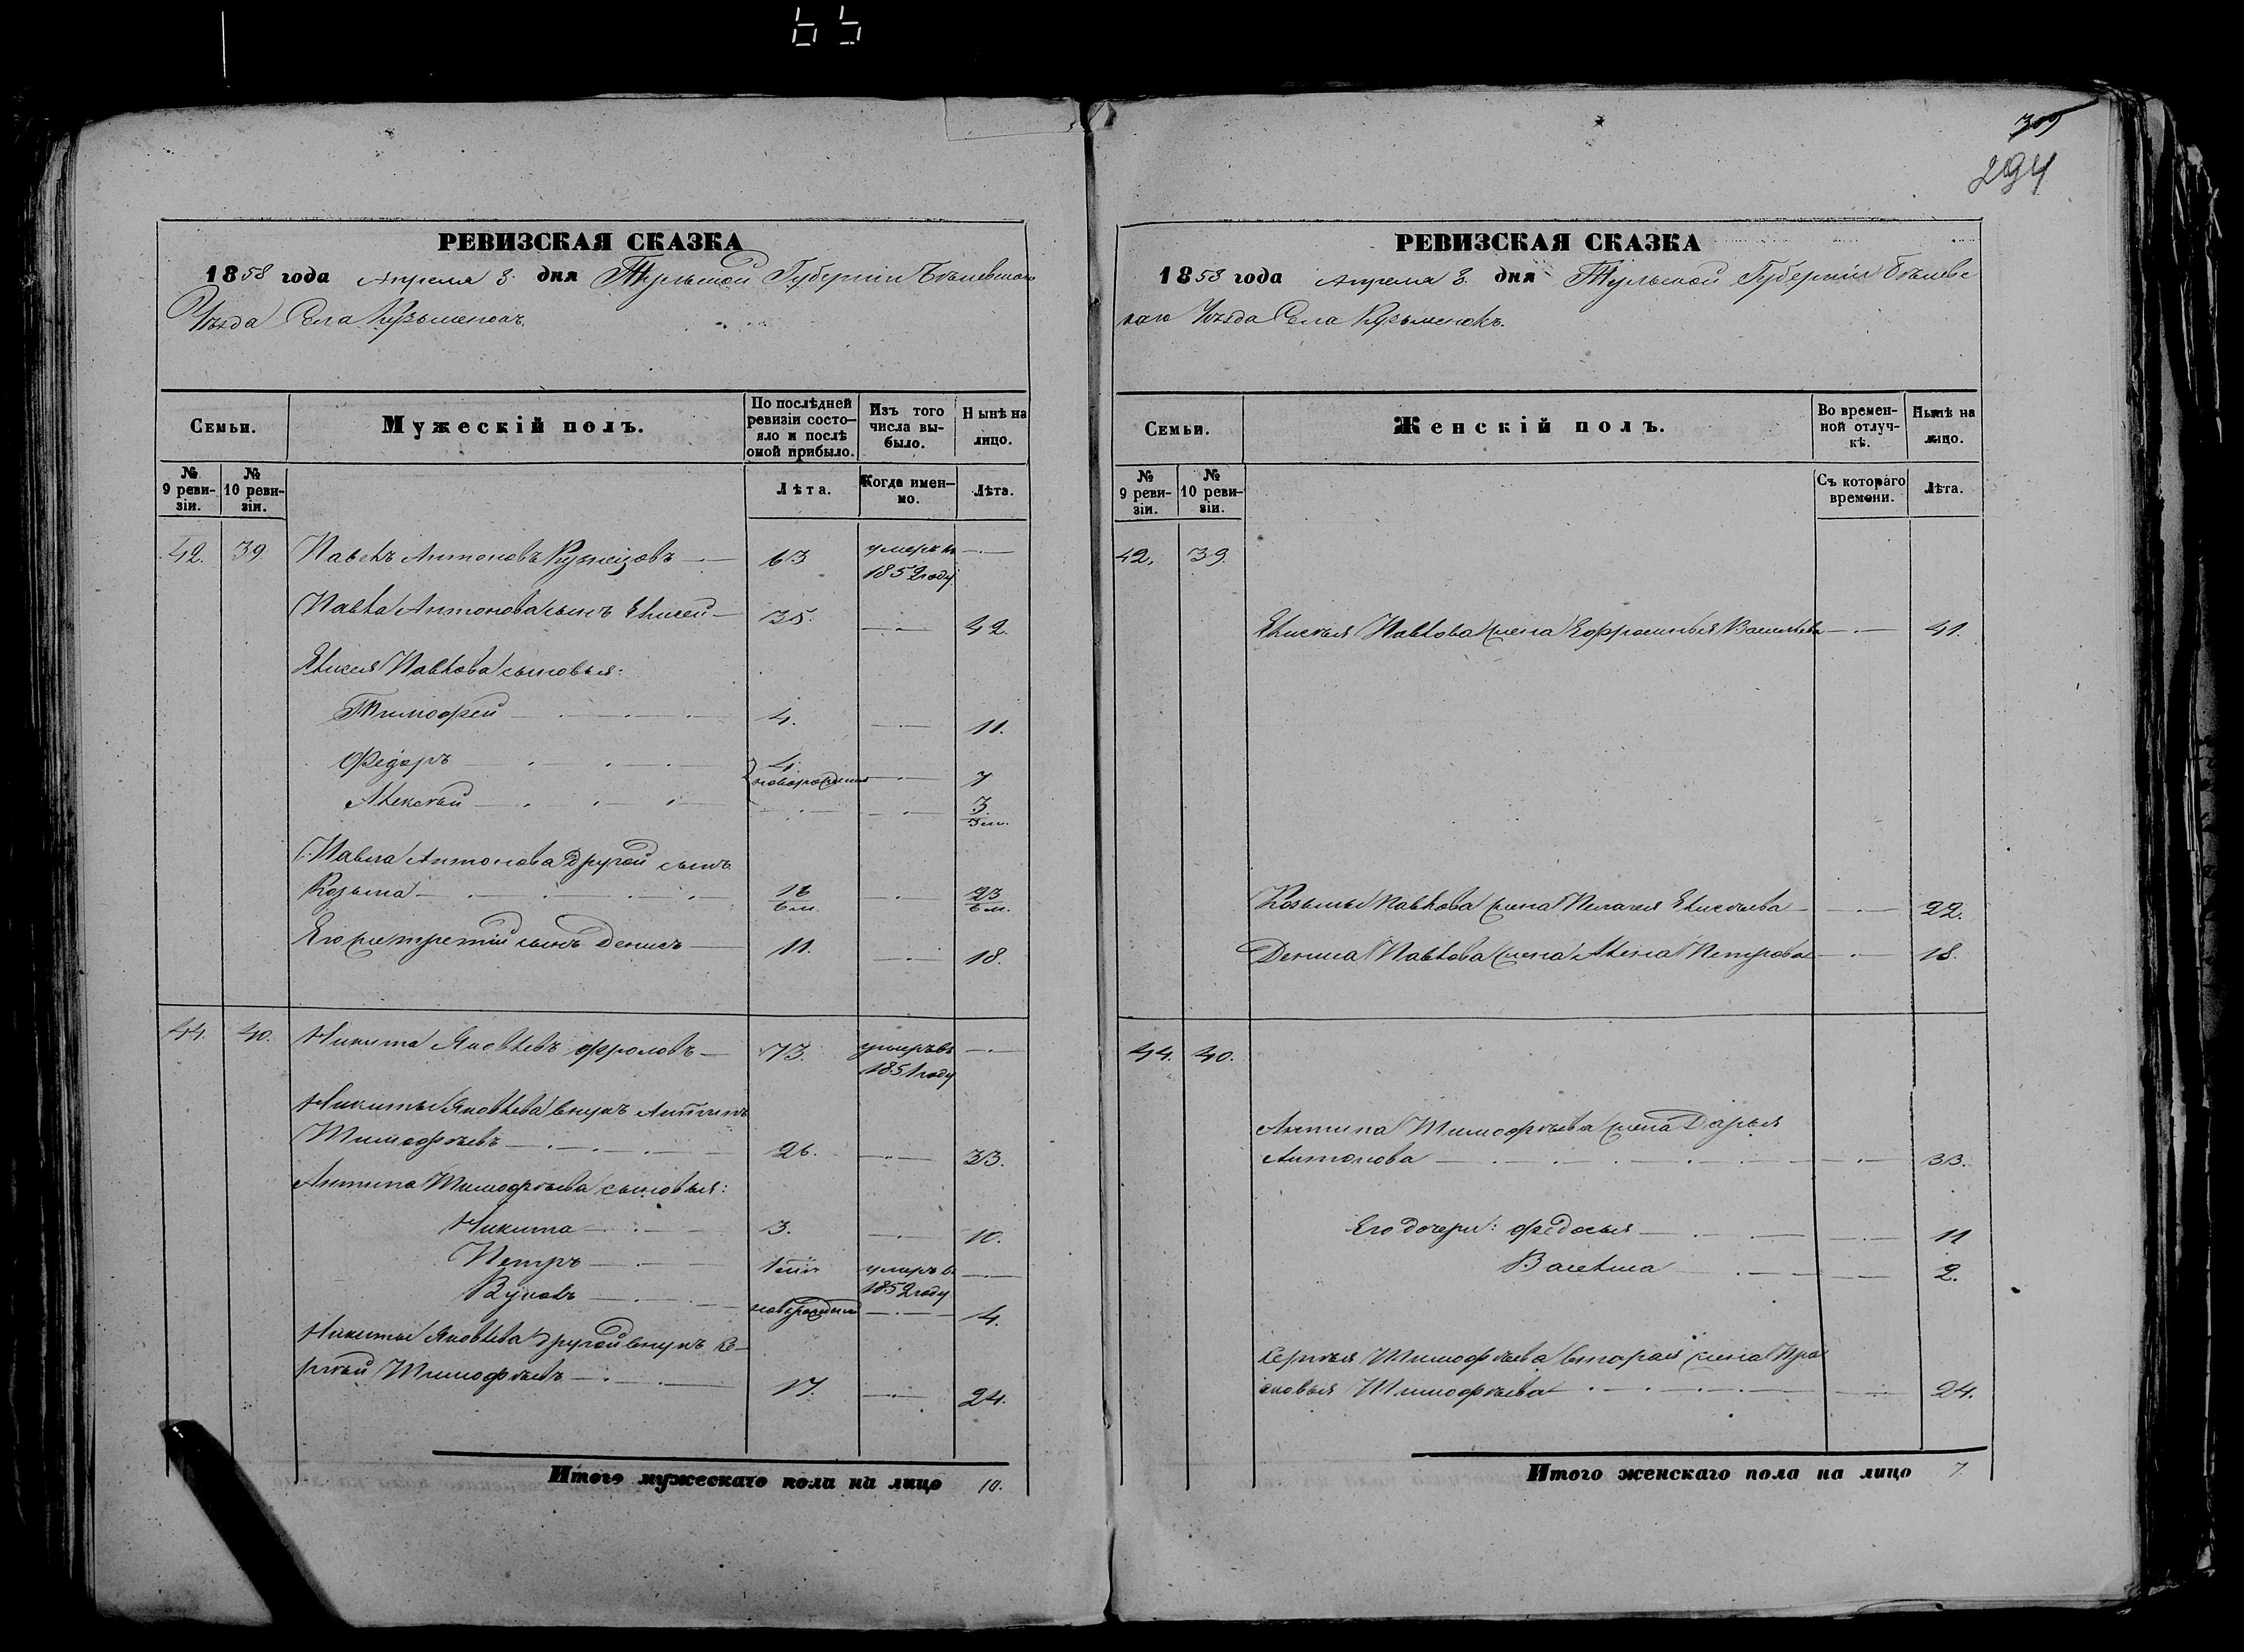 309
294
РЕВИЗСКАЯ СКАЗКА
1858 года Апреля 3. дня Тульской Губерніи Бѣлевскаго
Уѣзда Села Кузьменокъ.
Семьи.
Мужескій полъ.
По послѣдней ревизіи состояло и послѣ оной прибыло.
Изъ того числа выбыло.
Нынѣ на лицо.
№ 9 ревизіи.
№ 10 ревизіи.
Лѣта.
Когда именно.
Лѣта.
42. 39. Павелъ Антоновъ Кузнецовъ 63 умеръ въ 1852 году
Павла Антонова сынъ Елисей 35. 42.
Елисея Павлова сыновья:
Тимофей 4. 11.
Федоръ новорожденные 7
Алексѣй 3 3 м.
Павла Антонова другой сынъ
Козьма 16 6 м. 23 6 м.
Его же третій сынъ Денисъ 11. 18.
44. 40. Никита Яковлевъ Фроловъ 73. умеръ въ 1851 году
Никиты Яковлева внукъ Антипъ
Тимофѣевъ 26. 33.
Антипа Тимофѣева сыновья:
Никита 3. 10.
Петръ умеръ въ 1852 году
новорожденный 4.
Никиты Яковлева другой внукъ Сер-
гѣй Тимофѣевъ 17. 24.
Итого мужескаго пола на лицо 10.
РЕВИЗСКАЯ СКАЗКА
1858 года Апреля 3. дня Тульской Губерніи Бѣлевс
каго Уѣзда Села Кузьменокъ.
Семьи.
Женскій полъ.
Во временной отлучкѣ.
Нынѣ на лицо.
№ 9 ревизіи.
№ 10 ревизіи.
Съ котораго времени.
Лѣта.
42. 39.
Елисѣя Павлова жена Ефросинья Васильева 41.
Козьмы Павлова жена Пелагея Елисѣева 22.
Дениса Павлова жена Алена Петрова 18.
44. 40.
Антипа Тимофѣева жена Дарья
Антонова 33.
Его дочери: Федосья 11
Васелиса 2.
Сергѣя Тимофѣева вторая жена Пра
сковья Тимофѣева 24.
Итого женскаго пола на лицо 7.